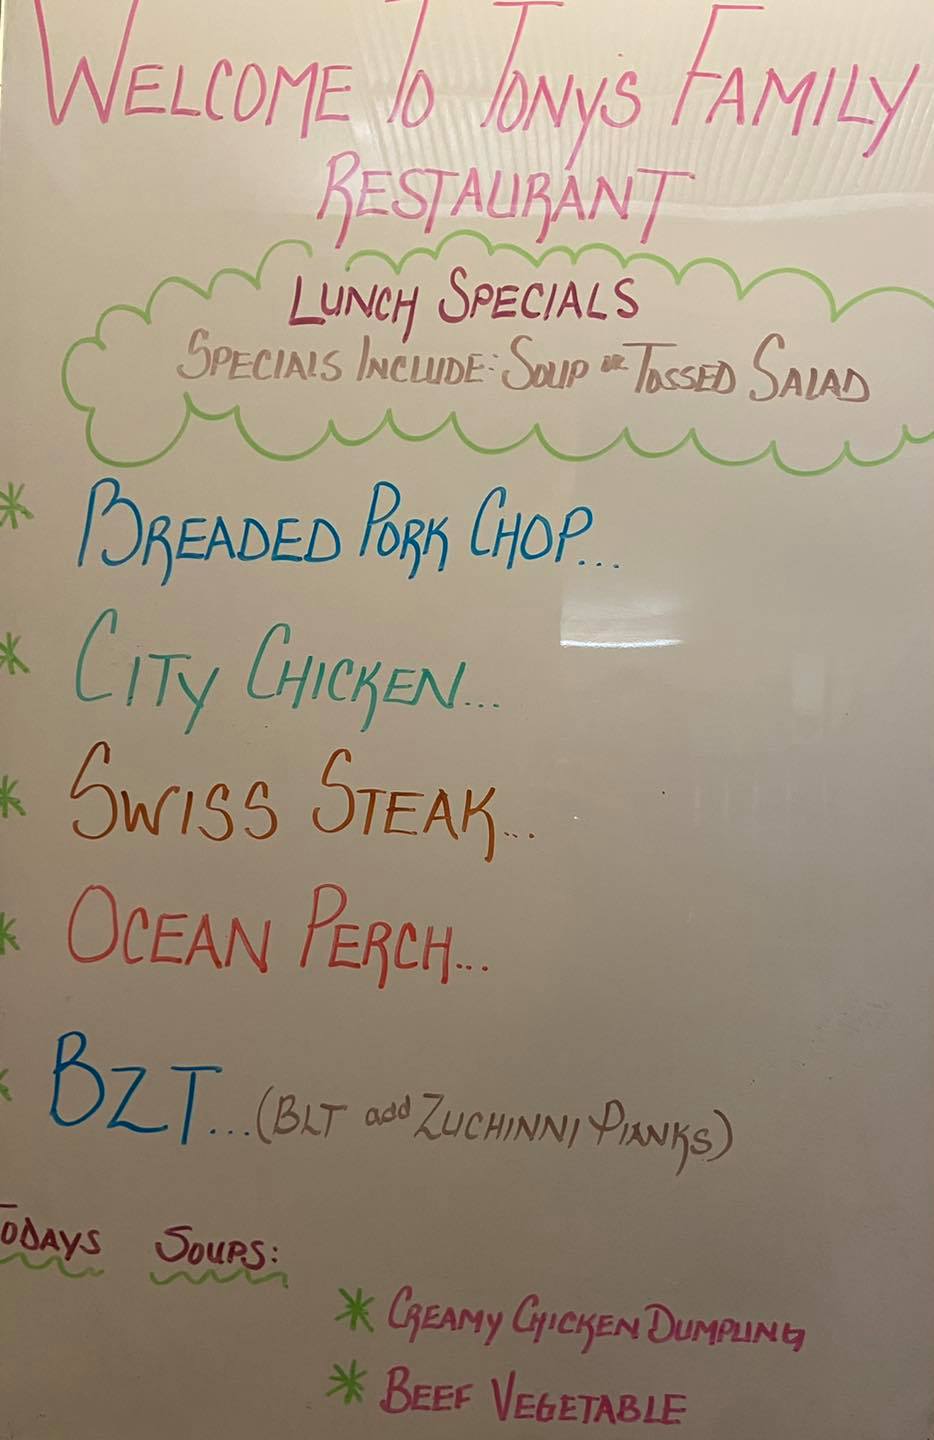 WELCOME TO TONY'S FAMILY
RESTAURANT
LUNCH SPECIALS
SPECIALS INCLUDE: SOUP OR TOSSED SALAD
* BREADED PORK CHOP...
* CITY CHICKEN...
* SWISS STEAK...
* OCEAN PERCH...
* BZT...(BLT add ZUCHINNI PLANKS)
TODAYS SOUPS:
* CREAMY CHICKEN DUMPLING
* BEEF VEGETABLE